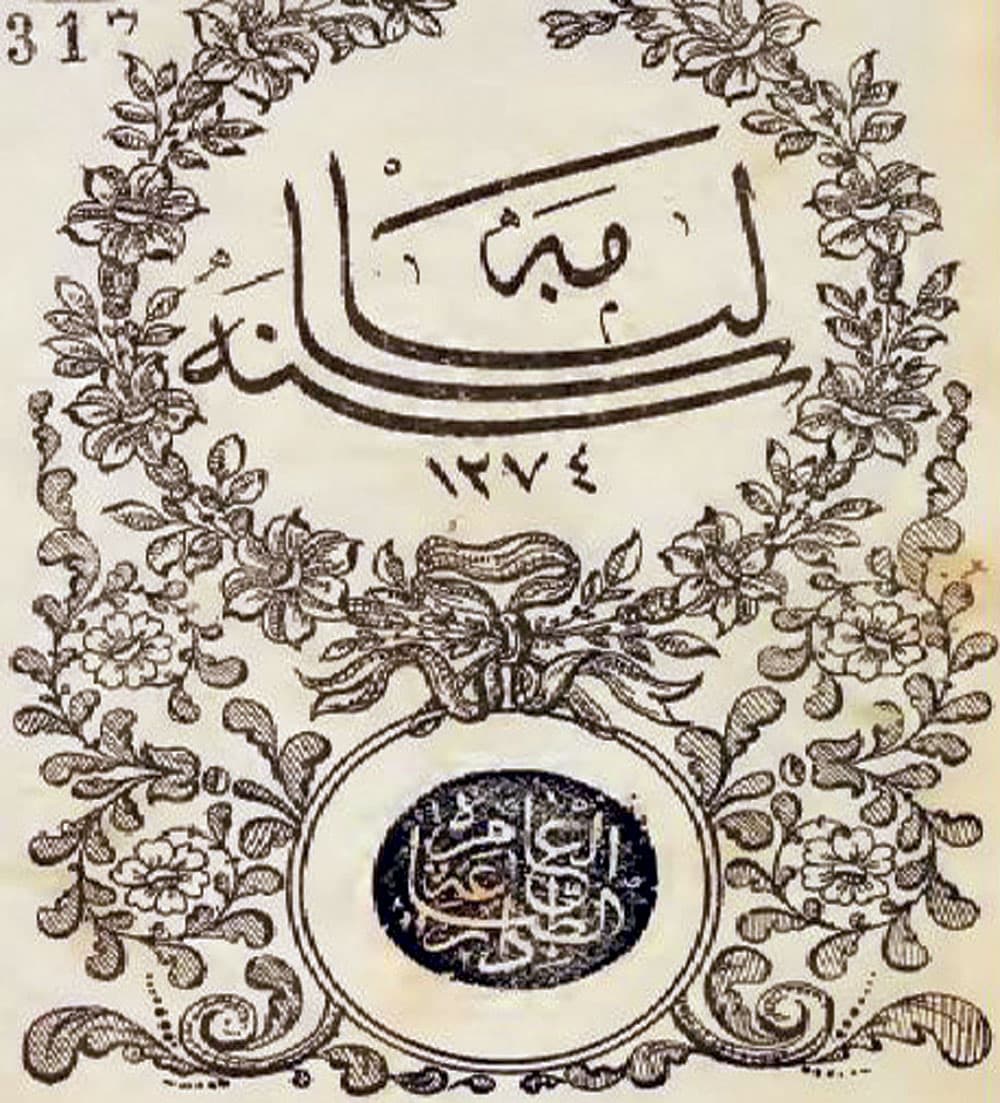 317
سالنامه
سنه
١٢٧٤